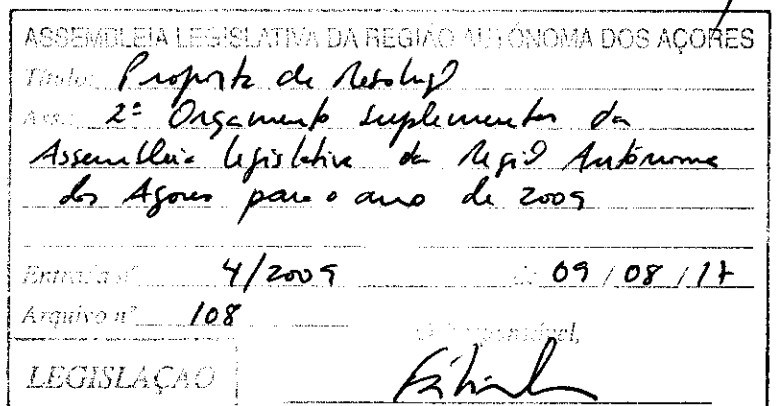 ASSEMBLEIA LEGISLATIVA DA REGIÃO AUTÓNOMA DOS AÇORES
Título: Proposta de Resolução
Ass.: 2º Orçamento Suplementar da
Assembleia Legislativa da Região Autónoma
dos Açores para o ano de 2009
Entrada nº 4/2009 de 09/08/17
Arquivo nº 108
O Responsável,
LEGISLAÇÃO